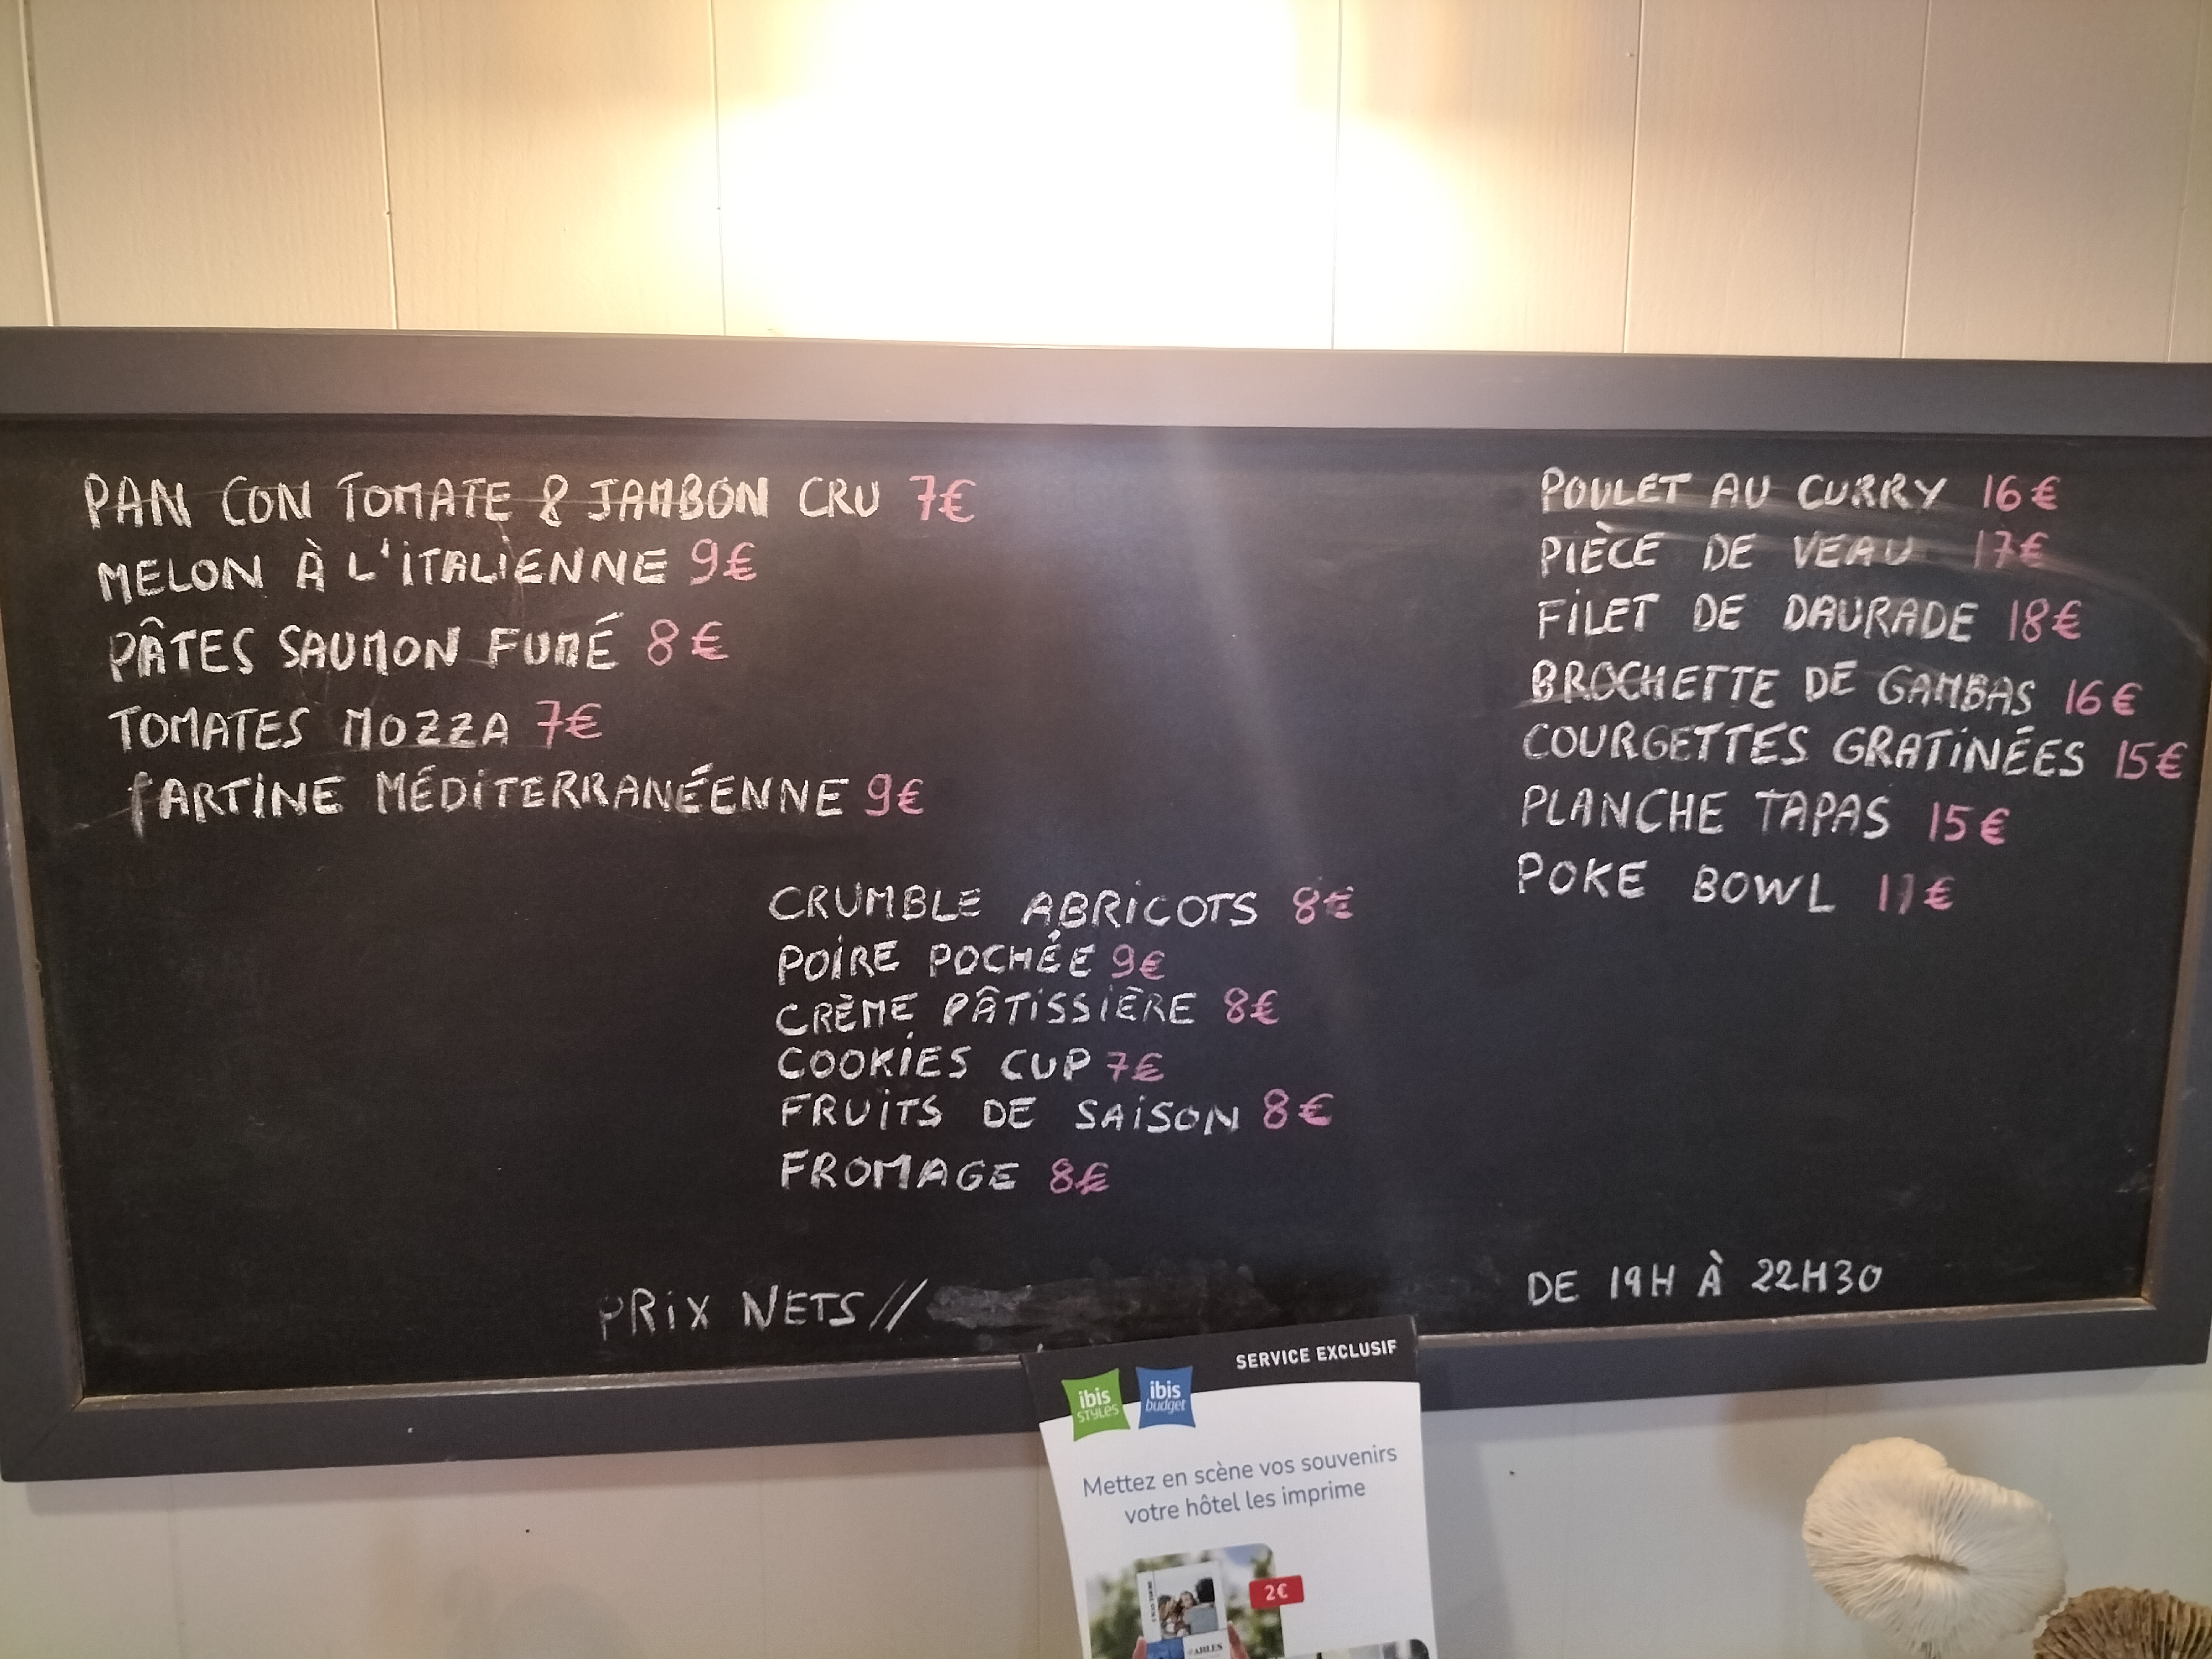 PAN CON TOMATE & JAMBON CRU 7€
MELON À L'ITALIENNE 9€
PÂTES SAUMON FUMÉ 8€
TOMATES MOZZA 7€
TARTINE MÉDITERRANÉENNE 9€
POULET AU CURRY 16€
PIÈCE DE VEAU 17€
FILET DE DAURADE 18€
BROCHETTE DE GAMBAS 16€
COURGETTES GRATINÉES 15€
PLANCHE TAPAS 15€
POKE BOWL
CRUMBLE ABRICOTS 8€
POIRE POCHÉE 9€
CRÈME PÂTISSIÈRE 8€
COOKIES CUP 7€
FRUITS DE SAISON 8€
FROMAGE 8€
PRIX NETS//
DE 19H À 22H30
SERVICE EXCLUSIF
ibis STYLES
ibis budget
Mettez en scène vos souvenirs
votre hôtel les imprime
2€
#ARLES